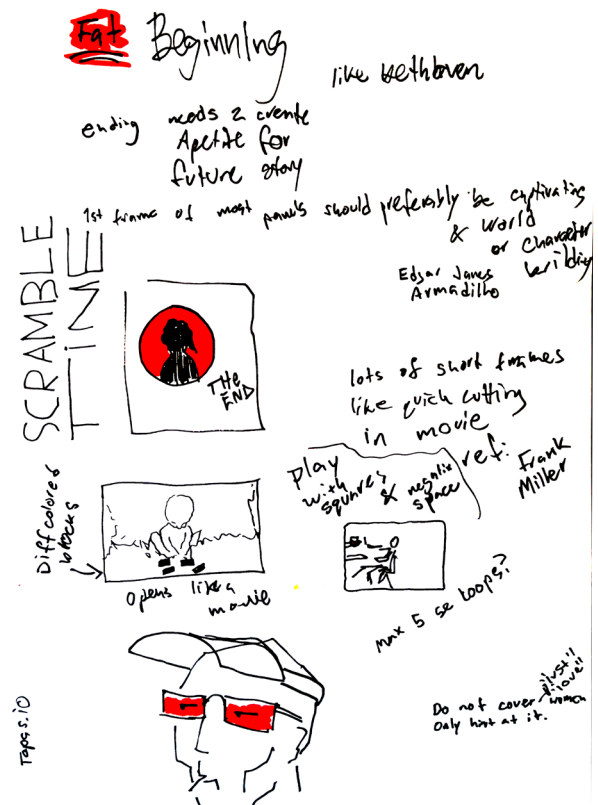 Fat Beginning
like Bethoven
ending needs 2 create
Apetite for
future story
1st frame of most panels should preferably be captivating
& world
or character
building
Edgar Janes
Armadilho
SCRAMBLE
TIME
THE
END
lots of short frames
like quick cutting
in movie
ref:
Frank
Miller
Play
with
squares & negative
space
Diff colored
blocks
Opens like a
movie
max 5 se loops?
Do not cover "lust"
"love" women
Only hint at it.
1 1
Tapas.io